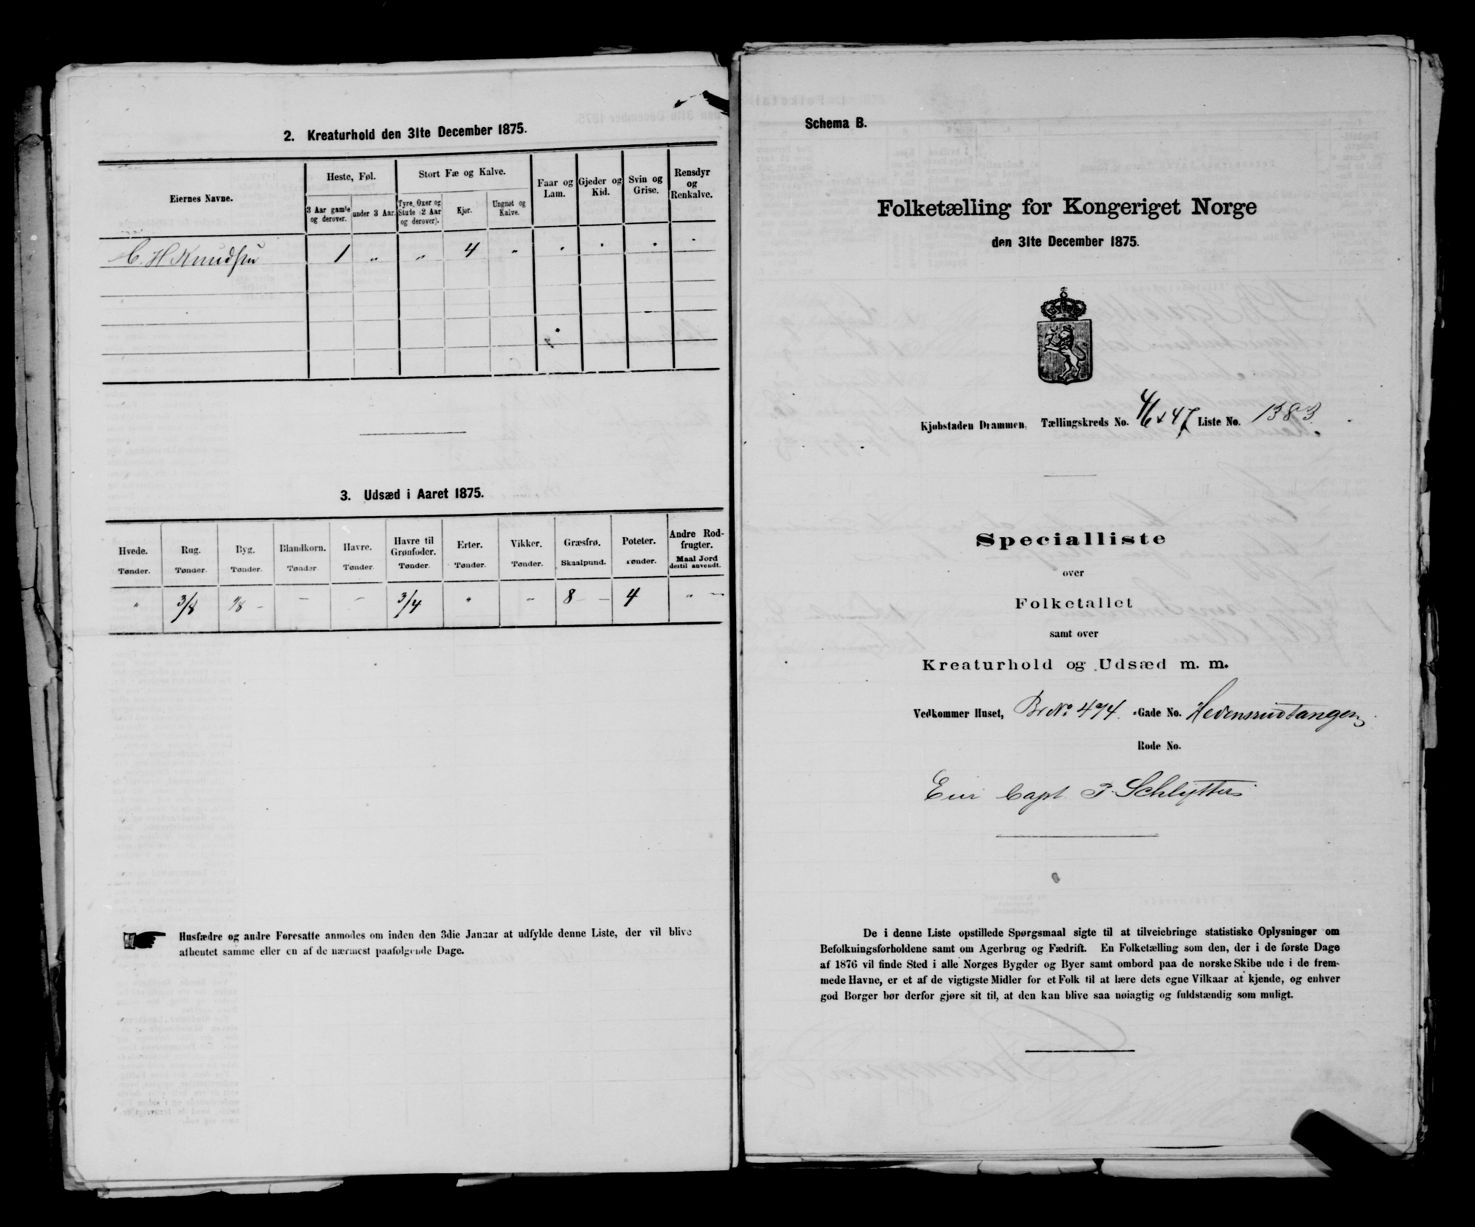 2. Kreaturhold den 31te December 1875.
Eiernes Navne.
Heste, Føl.
Stort Fæ og Kalve.
Faar og Lam.
Gjeder og Kid.
Svin og Grise.
Rensdyr og Renkalve.
3 Aar gamle og derover.
under 3 Aar.
Tyre, Oxer og Stute (2 Aar og derover).
Kjør.
Ungnøt og Kalve.
C. H Knudsen 1 " " 4 "
3. Udsæd i Aaret 1875.
Hvede. Rug. Byg. Blandkorn. Havre. Havre til Grønfoder. Erter. Vikker. Græsfrø. Poteter. Andre Rodfrugter.
Tønder. Tønder. Tønder. Tønder Tønder. Tønder. Tønder. Tønder. Skaalpund. Tønder. Maal Jord dertil anvendt.
" 3/8 - - - 3/4 " - 8 - 4 " -
Husfædre og andre Foresatte anmodes om inden den 3die Januar at udfylde denne Liste, der vil blive
afhentet samme eller en af de nærmest paafølgende Dage.
Schema B.
Folketælling for Kongeriget Norge
den 31te December 1875.
Kjøbstaden Drammen. Tællingskreds No. 46 & 47 Liste No. 1383
Specialliste
over
Folketallet
samt over
Kreaturhold og Udsæd m. m.
Vedkommer Huset, Br No 474. Gade No. Hedensrudtangen
Rode No.
Eier Capt P. Schlytter
De i denne Liste opstillede Spørgsmaal sigte til at tilveiebringe statistiske Oplysninger om
Befolkningsforholdene samt om Agerbrug og Fædrift. En Folketælling som den, der i de første Dage
af 1876 vil finde Sted i alle Norges Bygder og Byer samt ombord paa de norske Skibe ude i de frem-
mede Havne, er et af de vigtigste Midler for et Folk til at lære dets egne Vilkaar at kjende, og enhver
god Borger bør derfor gjøre sit til, at den kan blive saa nøiagtig og fuldstændig som muligt.